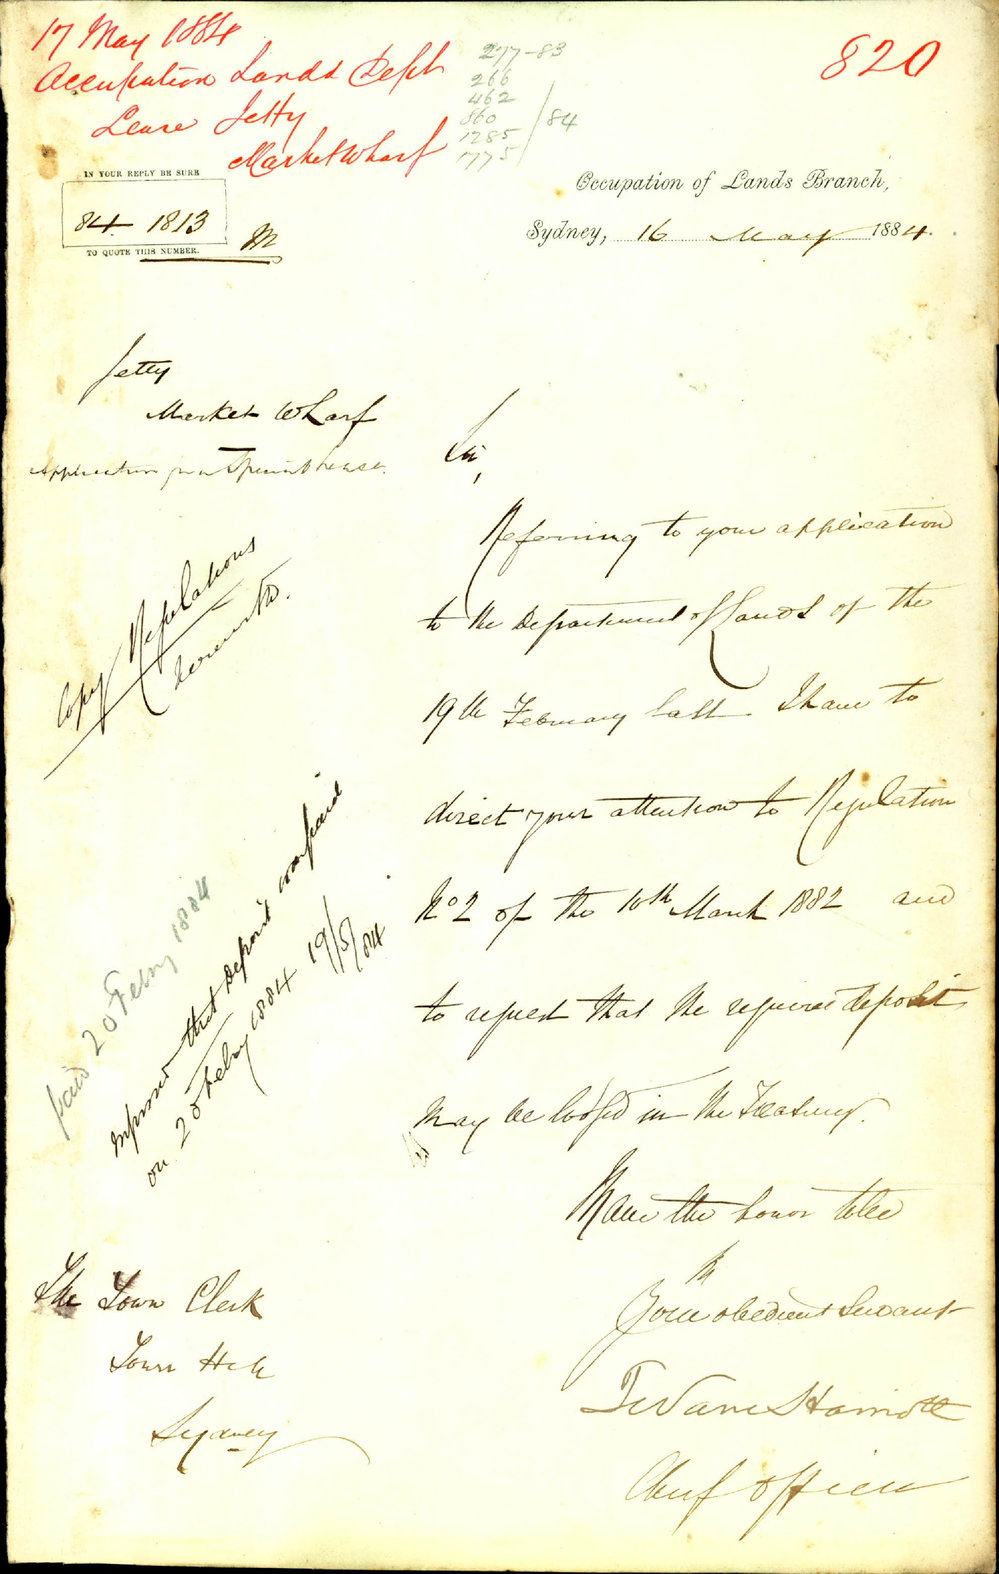 17 May 1884
Occupation Lands Dept
Lease Jetty
Market Wharf
277-83
266
462
860
1285
1775
/84
820
IN YOUR REPLY BE SURE
84-1813
TO QUOTE THIS NUMBER.
M
Occupation of Lands Branch,
Sydney, 16 May 1884.
Jetty
Market Wharf
Application for a Special Lease.
Sir,
Copy Regulations
herewith.
Referring to your application
to the Department of Lands of the
19th February last I have to
direct your attention to Regulation
No 2 of the 10th March 1882 and
to request that the required deposit
may be lodged in the Treasury.
paid 20 Feby 1884
Informed that deposit was paid
on 20 Feby 1884 19/5/84
I have the honor to be
Sir
Your obedient Servant
Chief Officer
The Town Clerk
Town Hall
Sydney